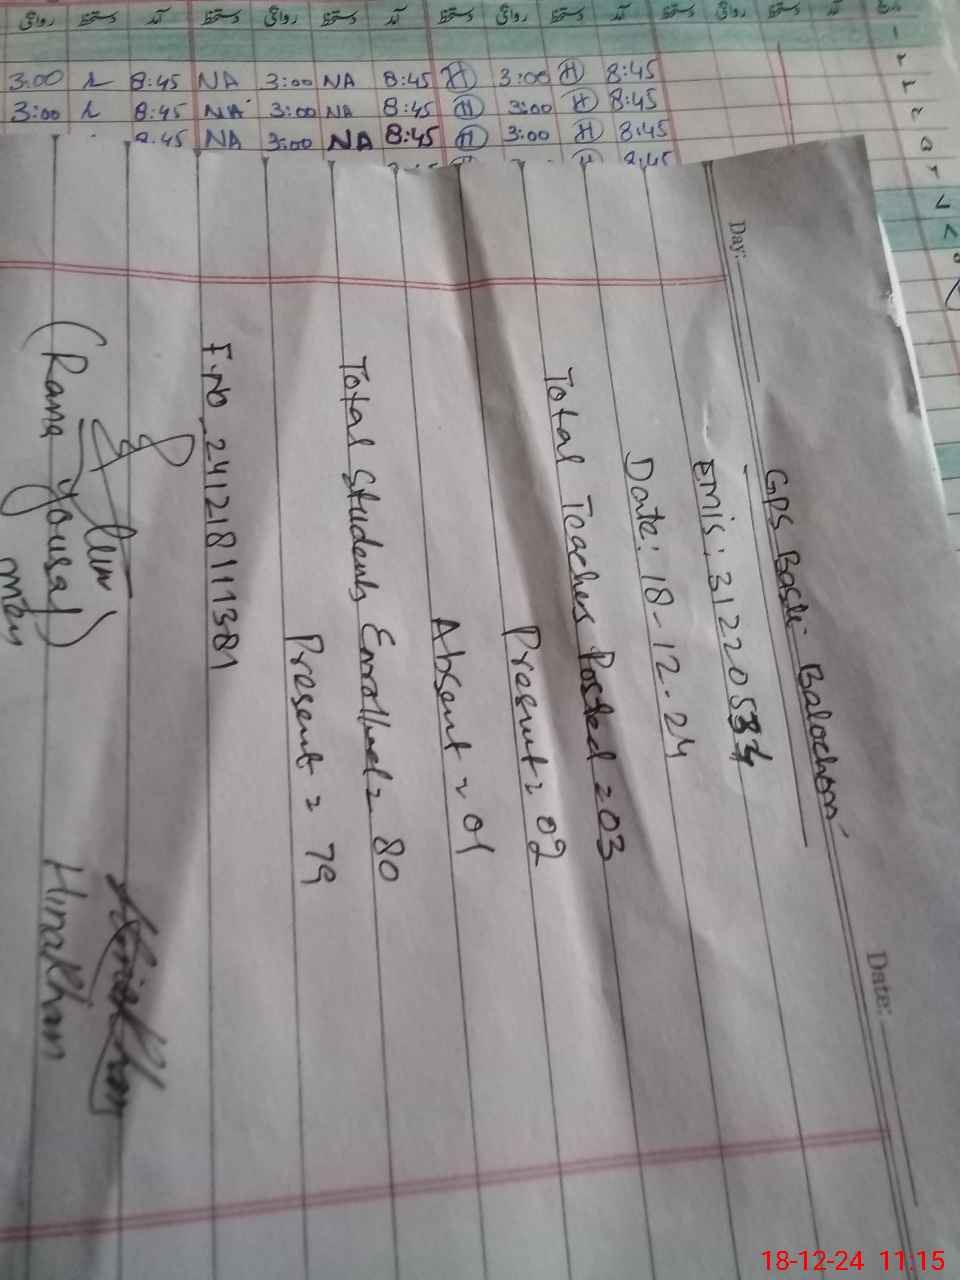 روانگی دستخط آمد دستخط روانگی دستخط آمد دستخط روانگی دستخط آمد دستخط روانگی دستخط آمد
3:00 8:45 NA 3:00 NA 8:45 H 3:00 H 8:45
3:00 8:45 NA 3:00 NA 8:45 H 3:00 H 8:45
8:45 NA 3:00 NA 8:45 H 3:00 H 8:45
H 8:45
Day: Date:
GPS Basti Balochan
EMIS: 31220534
Date: 18-12-24
Total Teachers Posted = 03
Present = 02
Absent = 01
Total Students Enrolled = 80
Present = 79
F.No_241218111381
(Rana Yousaf) Hina Khan
18-12-24 11:15